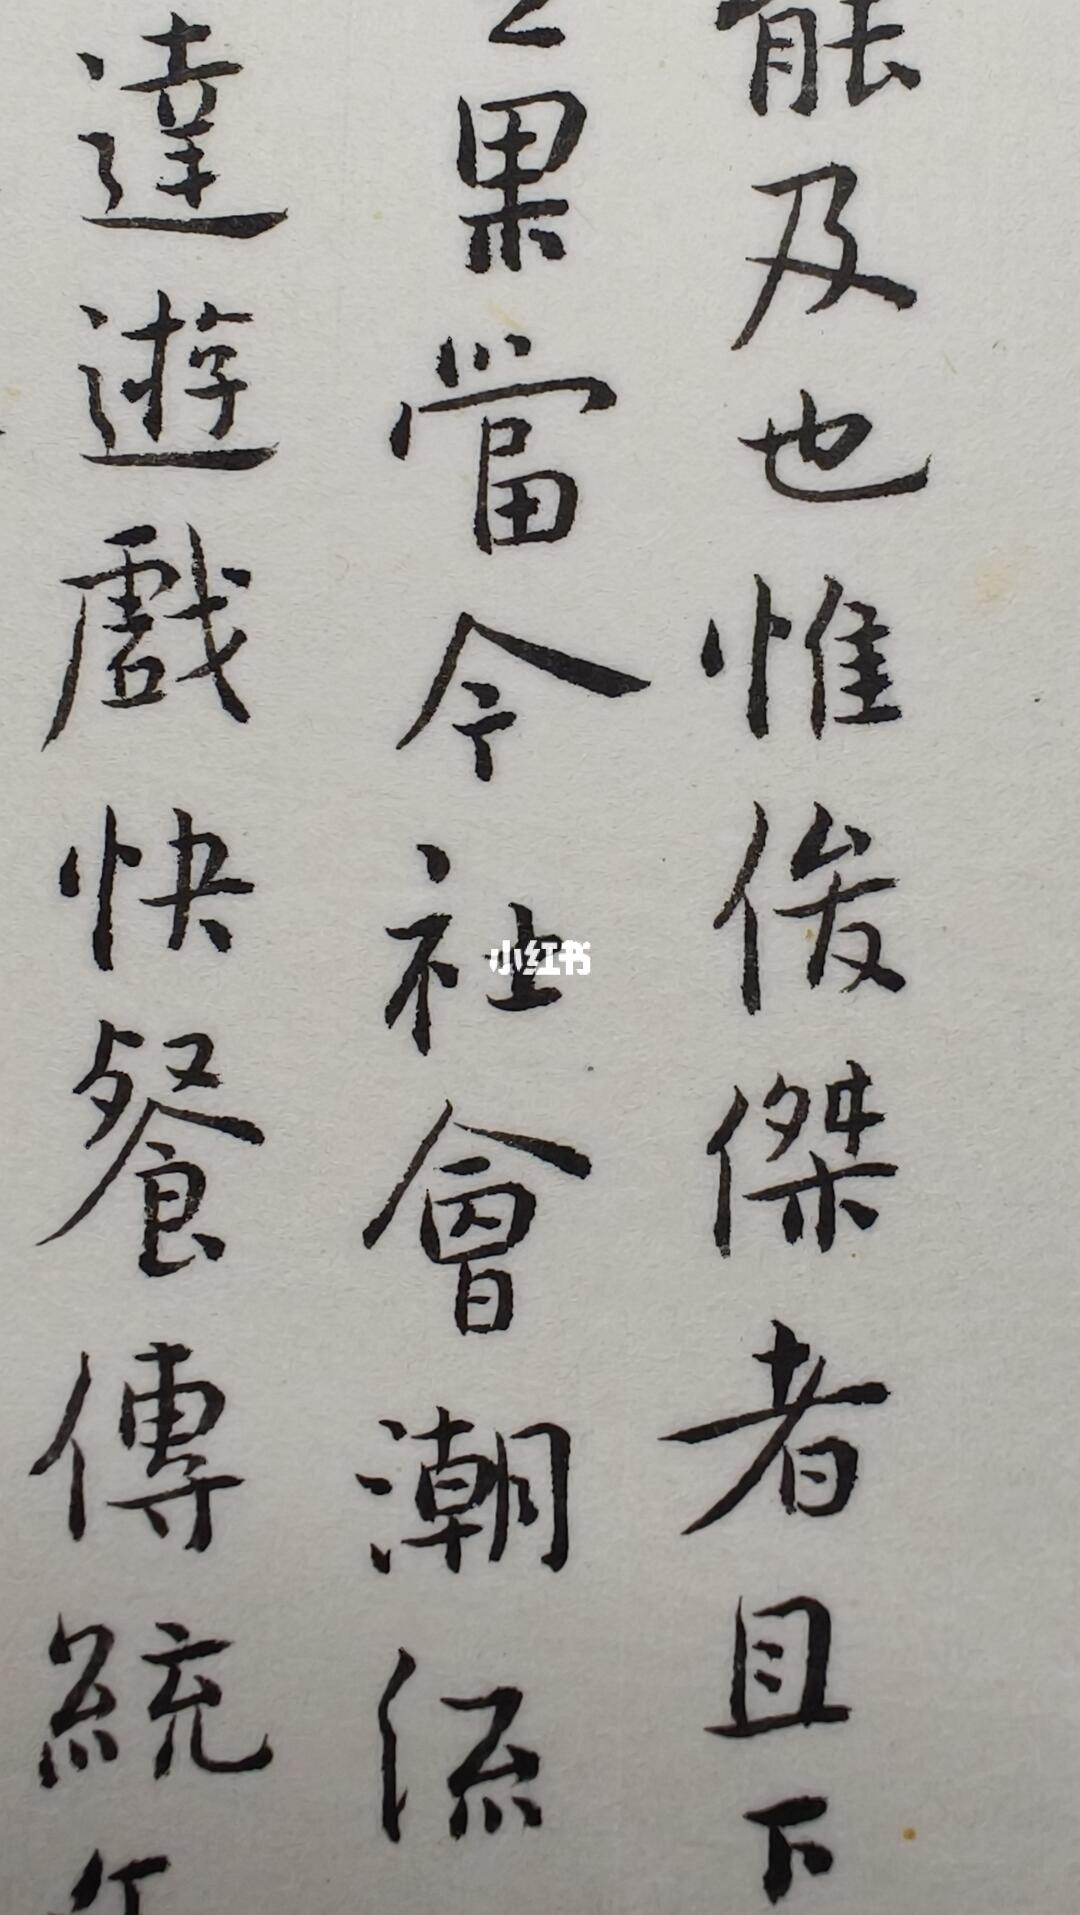 能及也惟俊傑者且下
之果當今社會潮流
達遊戲快餐傳統
小红书